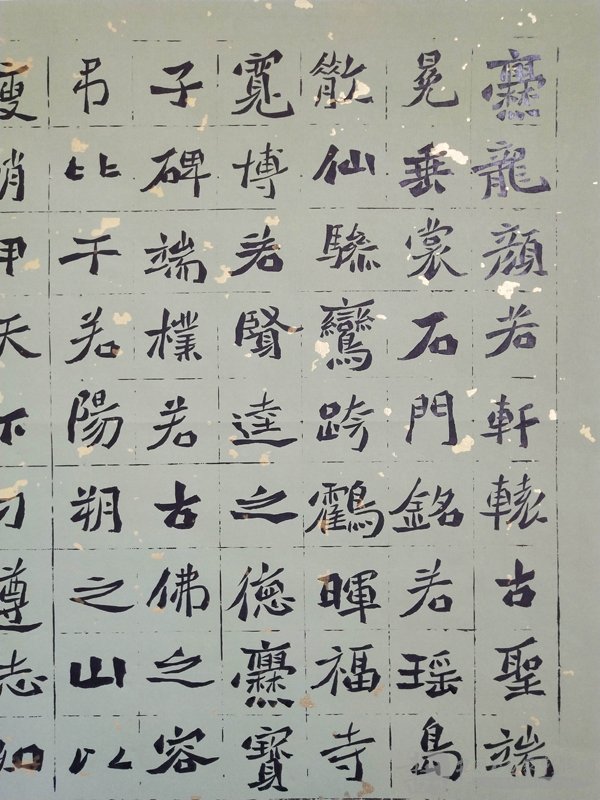 爨龍顔若軒轅古聖端
冕垂裳石門銘若瑶島
散仙驂鸞跨鸖暉福寺
寬博若賢達之德爨寶
子碑端樸若古佛之容
弔比干若陽朔之山以
瘦峭甲天下刁遵志如